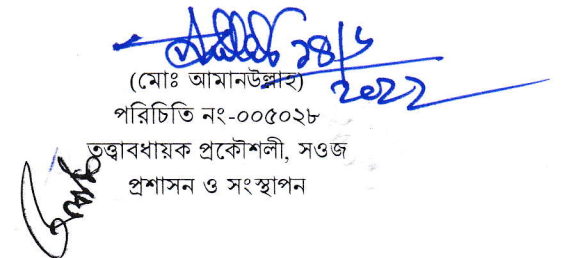 ১৪/৬
2022
(মোঃ আমানউল্লাহ)
পরিচিতি নং-০০৫০২৮
তত্ত্বাবধায়ক প্রকৌশলী, সওজ
প্রশাসন ও সংস্থাপন